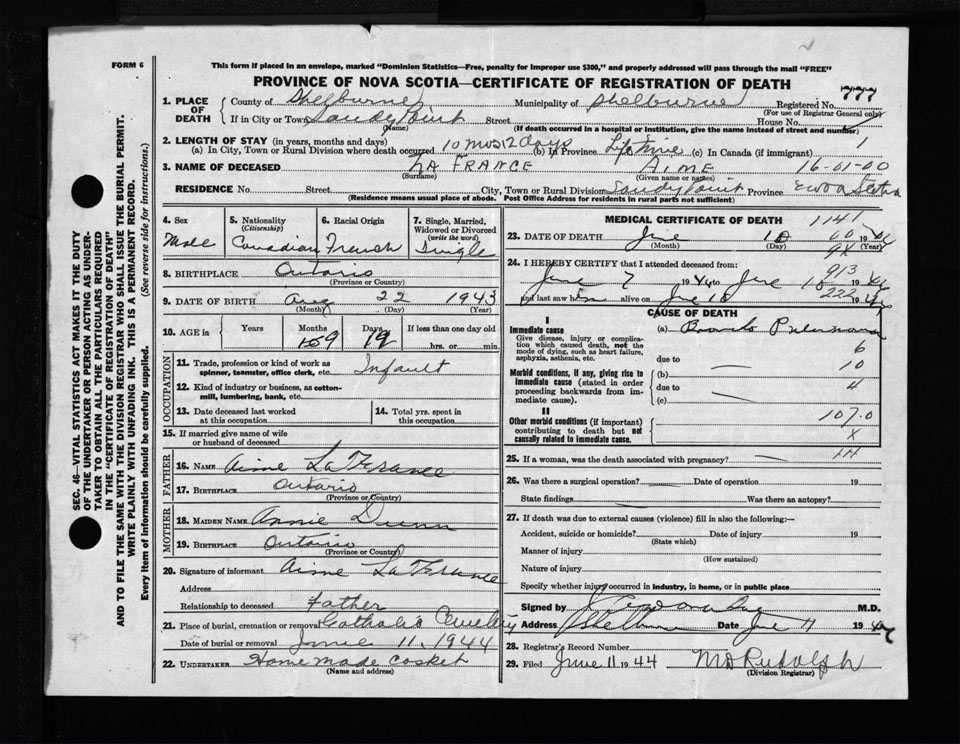 FORM 6
This form if placed in an envelope, marked "Dominion Statistics—Free, penalty for improper use $300," and properly addressed will pass through the mail "FREE"
PROVINCE OF NOVA SCOTIA—CERTIFICATE OF REGISTRATION OF DEATH
777
1. PLACE OF DEATH
County of Shelburne Municipality of Shelburne Registered No.
(For use of Registrar General only)
If in City or Town Sandy Point Street House No.
(Name) (If death occurred in a hospital or institution, give the name instead of street and number)
2. LENGTH OF STAY (in years, months and days) 1
(a) In City, Town or Rural Division where death occurred 10 mos 12 days (b) In Province Life Time (c) In Canada (if immigrant)
3. NAME OF DECEASED LA FRANCE AIME 16-01-00
(Surname) (Given name or names)
RESIDENCE No. Street City, Town or Rural Division Sandy Point Province Scotia
(Residence means usual place of abode. Post Office Address for residents in rural parts not sufficient)
4. Sex Male
5. Nationality (Citizenship) Canadian
6. Racial Origin French
7. Single, Married, Widowed or Divorced (write the word) Single
8. BIRTHPLACE Ontario
(Province or Country)
9. DATE OF BIRTH Aug 22 1943
(Month) (Day) (Year)
10. AGE in Years Months 9 Days 19 If less than one day old
hrs. or min.
OCCUPATION
11. Trade, profession or kind of work as spinner, teamster, office clerk, etc. Infault
12. Kind of industry or business, as cotton-mill, lumbering, bank, etc.
13. Date deceased last worked at this occupation
14. Total yrs. spent in this occupation
15. If married give name of wife or husband of deceased
FATHER
16. NAME Aime LaFrance
17. BIRTHPLACE Ontario
(Province or Country)
MOTHER
18. MAIDEN NAME Annie Dunn
19. BIRTHPLACE Ontario
(Province or Country)
20. Signature of informant Aime LaFrance
Address
Relationship to deceased Father
21. Place of burial, cremation or removal Catholic Cemetery
Date of burial or removal June 11, 1944
22. UNDERTAKER Home made casket
(Name and address)
MEDICAL CERTIFICATE OF DEATH 1141
23. DATE OF DEATH June 10 19
(Month) (Day) (Year)
24. I HEREBY CERTIFY that I attended deceased from: 913
June 7 1944 to June 10 1944
and last saw him alive on June 10 222
CAUSE OF DEATH
I
Immediate cause (a) Broncho Pneumonia
Give disease, injury or complication which caused death, not the mode of dying, such as heart failure, asphyxia, asthenia, etc.
due to
6
10
Morbid conditions, if any, giving rise to immediate cause (stated in order proceeding backwards from immediate cause).
(b)
due to 4
(c)
II
107.0
Other morbid conditions (if important) contributing to death but not causally related to immediate cause.
X
25. If a woman, was the death associated with pregnancy?
26. Was there a surgical operation? Date of operation 19
State findings Was there an autopsy?
27. If death was due to external causes (violence) fill in also the following:—
Accident, suicide or homicide? Date of injury 19
(State which)
Manner of injury
(How sustained)
Nature of injury
Specify whether injury occurred in industry, in home, or in public place
Signed by M.D.
Address Shelburne Date June 11 1944
28. Registrar's Record Number
29. Filed June 11 1944 MA Rudolph
(Division Registrar)
SEC. 46—VITAL STATISTICS ACT MAKES IT THE DUTY
OF THE UNDERTAKER OR PERSON ACTING AS UNDER-
TAKER TO OBTAIN ALL THE PARTICULARS REQUIRED
IN THE "CERTIFICATE OF REGISTRATION OF DEATH"
AND TO FILE THE SAME WITH THE DIVISION REGISTRAR WHO SHALL ISSUE THE BURIAL PERMIT.
WRITE PLAINLY WITH UNFADING INK. THIS IS A PERMANENT RECORD.
Every item of information should be carefully supplied. (See reverse side for instructions.)